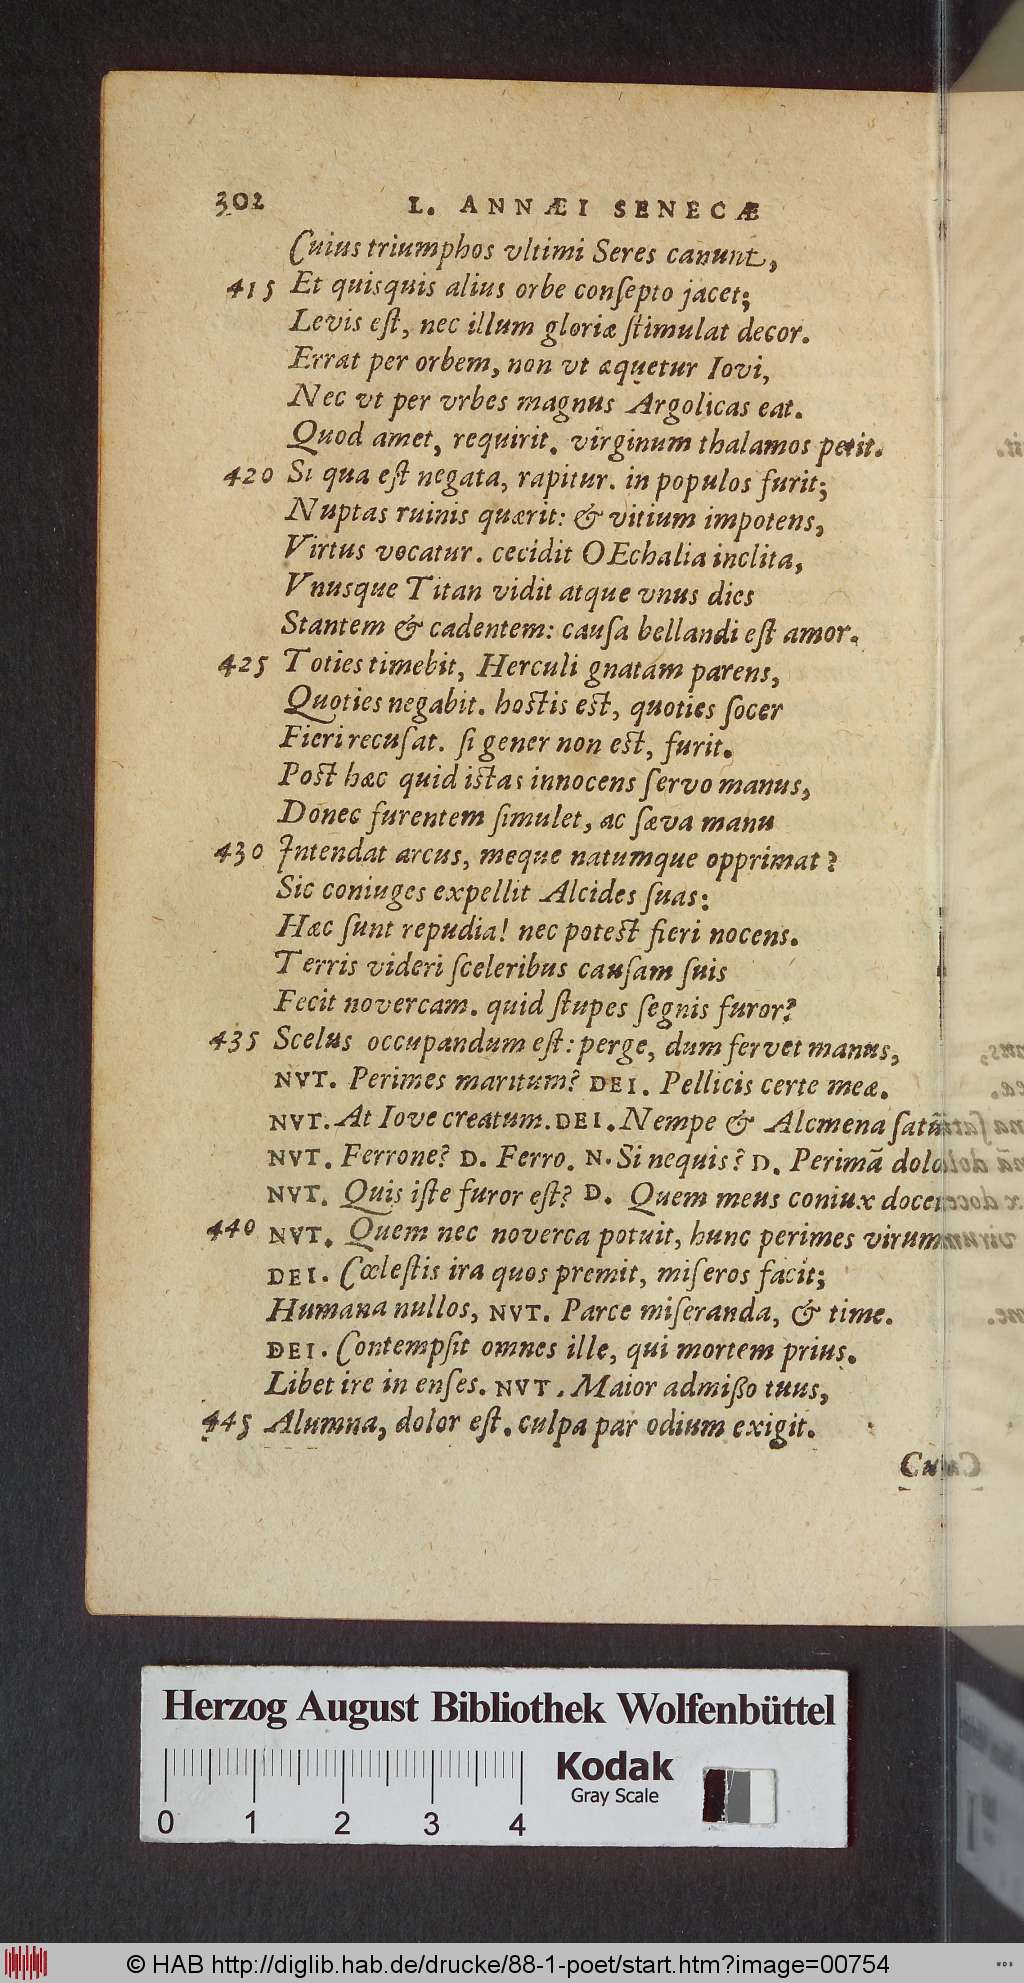 302 L. ANNÆI SENECÆ
Cuius triumphos vltimi Seres canunt,
415 Et quisquis alius orbe conſepto jacet;
Levis eſt, nec illum gloriæ ſtimulat decor.
Errat per orbem, non vt æquetur Iovi,
Nec vt per vrbes magnus Argolicas eat.
Quod amet, requirit. virginum thalamos petit.
420 Si qua eſt negata, rapitur. in populos furit;
Nuptas ruinis quærit: & vitium impotens,
Virtus vocatur. cecidit OEchalia inclita,
Vnusque Titan vidit atque vnus dies
Stantem & cadentem: cauſa bellandi eſt amor.
425 Toties timebit, Herculi gnatam parens,
Quoties negabit. hostis est, quoties ſocer
Fieri recuſat. ſi gener non est, furit.
Post hæc quid istas innocens ſervo manus,
Donec furentem ſimulet, ac ſæva manu
430 Intendat arcus, meque natumque opprimat?
Sic coniuges expellit Alcides ſuas:
Hæc ſunt repudia! nec potest fieri nocens.
Terris videri ſceleribus cauſam ſuis
Fecit novercam. quid ſtupes ſegnis furor?
435 Scelus occupandum eſt: perge, dum fervet manus,
NVT. Perimes maritum? DEI. Pellicis certe meæ.
NVT. At Iove creatum. DEI. Nempe & Alcmena ſatū
NVT. Ferrone? D. Ferro. N. Si nequis? D. Perimā dolo
NVT. Quis iſte furor eſt? D. Quem meus coniux
440 NVT. Quem nec noverca potuit, hunc perimes virum
DEI. Cœleſtis ira quos premit, miſeros facit;
Humana nullos, NVT. Parce miſeranda, & time.
DEI. Contempſit omnes ille, qui mortem prius.
Libet ire in enſes. NVT. Maior admißo tuus,
445 Alumna, dolor eſt. culpa par odium exigit.
Herzog August Bibliothek Wolfenbüttel
Kodak
Gray Scale
0 1 2 3 4
© HAB http://diglib.hab.de/drucke/88-1-poet/start.htm?image=00754